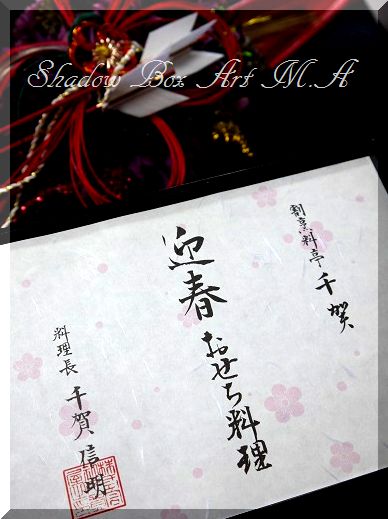 Shadow Box Art M.A
割烹料亭 千賀
迎春 おせち料理
料理長 千賀 信明